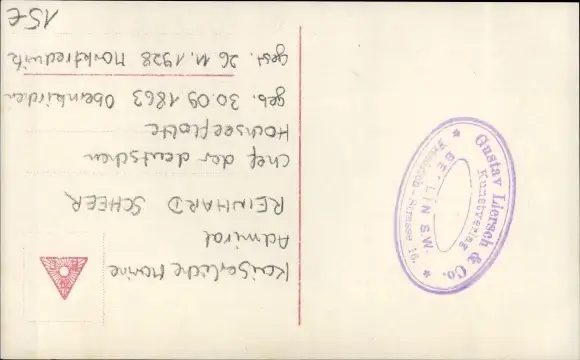 Kaiserliche Marine
Admiral
REINHARD SCHEER
Chef der deutschen
Hochseeflotte
geb. 30.09.1863 Obernkirchen
gest. 26.11.1928 Marktredwitz
15€
Gustav Liersch & Co.
Kunstverlag
BERLIN S.W.
Friedrich-Strasse 16.